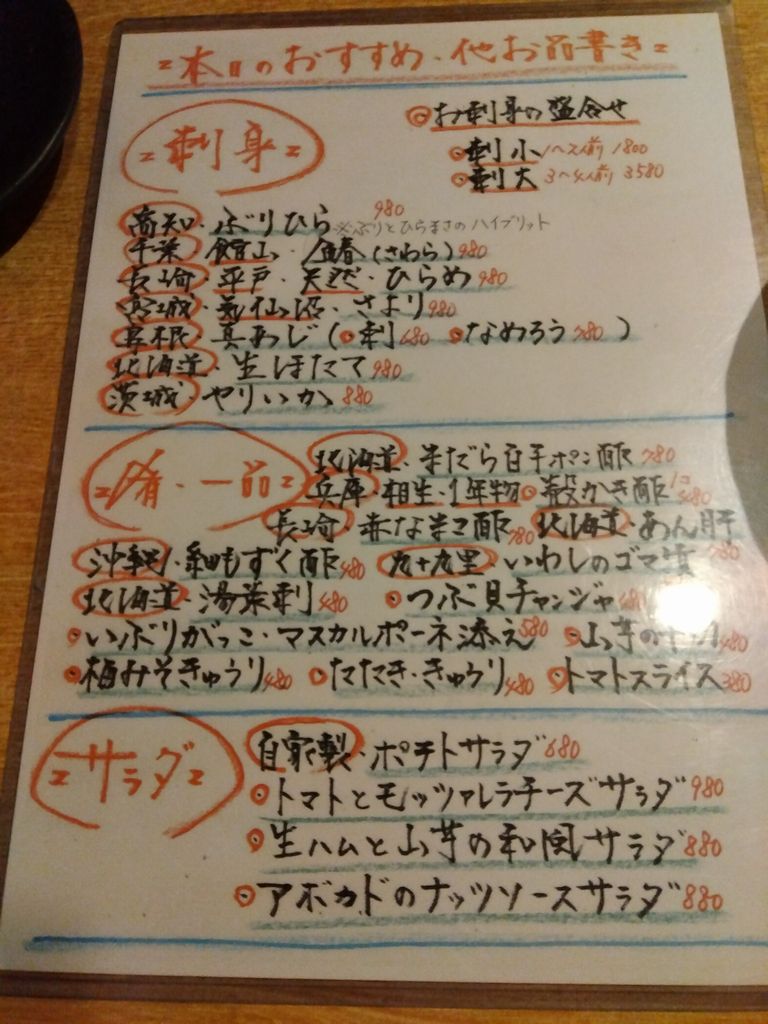 本日のおすすめ・他お品書き
刺身
お刺身の盛合せ
刺小 1〜2人前 1800
刺大 3〜4人前 3580
高知・ぶりひら 980 ※ぶりとひらまさのハイブリット
千葉・館山・鰆(さわら) 980
長崎・平戸・天然・ひらめ 980
宮城・気仙沼・さより 980
島根・真あじ(刺 680 なめろう 780)
北海道・生ほたて 980
茨城・ヤリいか 880
肴・一品
北海道・まだら白子ポン酢 780
兵庫・相生・1年物 殻かき酢 1コ 480
長崎・赤なまこ酢 780 北海道・あん肝 780
沖縄・細もずく酢 480 九十九里・いわしのゴマ
北海道・湯葉刺 480 つぶ貝チャンジャ
いぶりがっこ・マスカルポーネ添え 580 山芋の 480
梅みそきゅうり 480 たたき・きゅうり 480 トマトスライス 380
サラダ
自家製・ポテトサラダ 680
トマトとモッツァレラチーズサラダ 980
生ハムと山芋の和風サラダ 880
アボカドのナッツソースサラダ 880